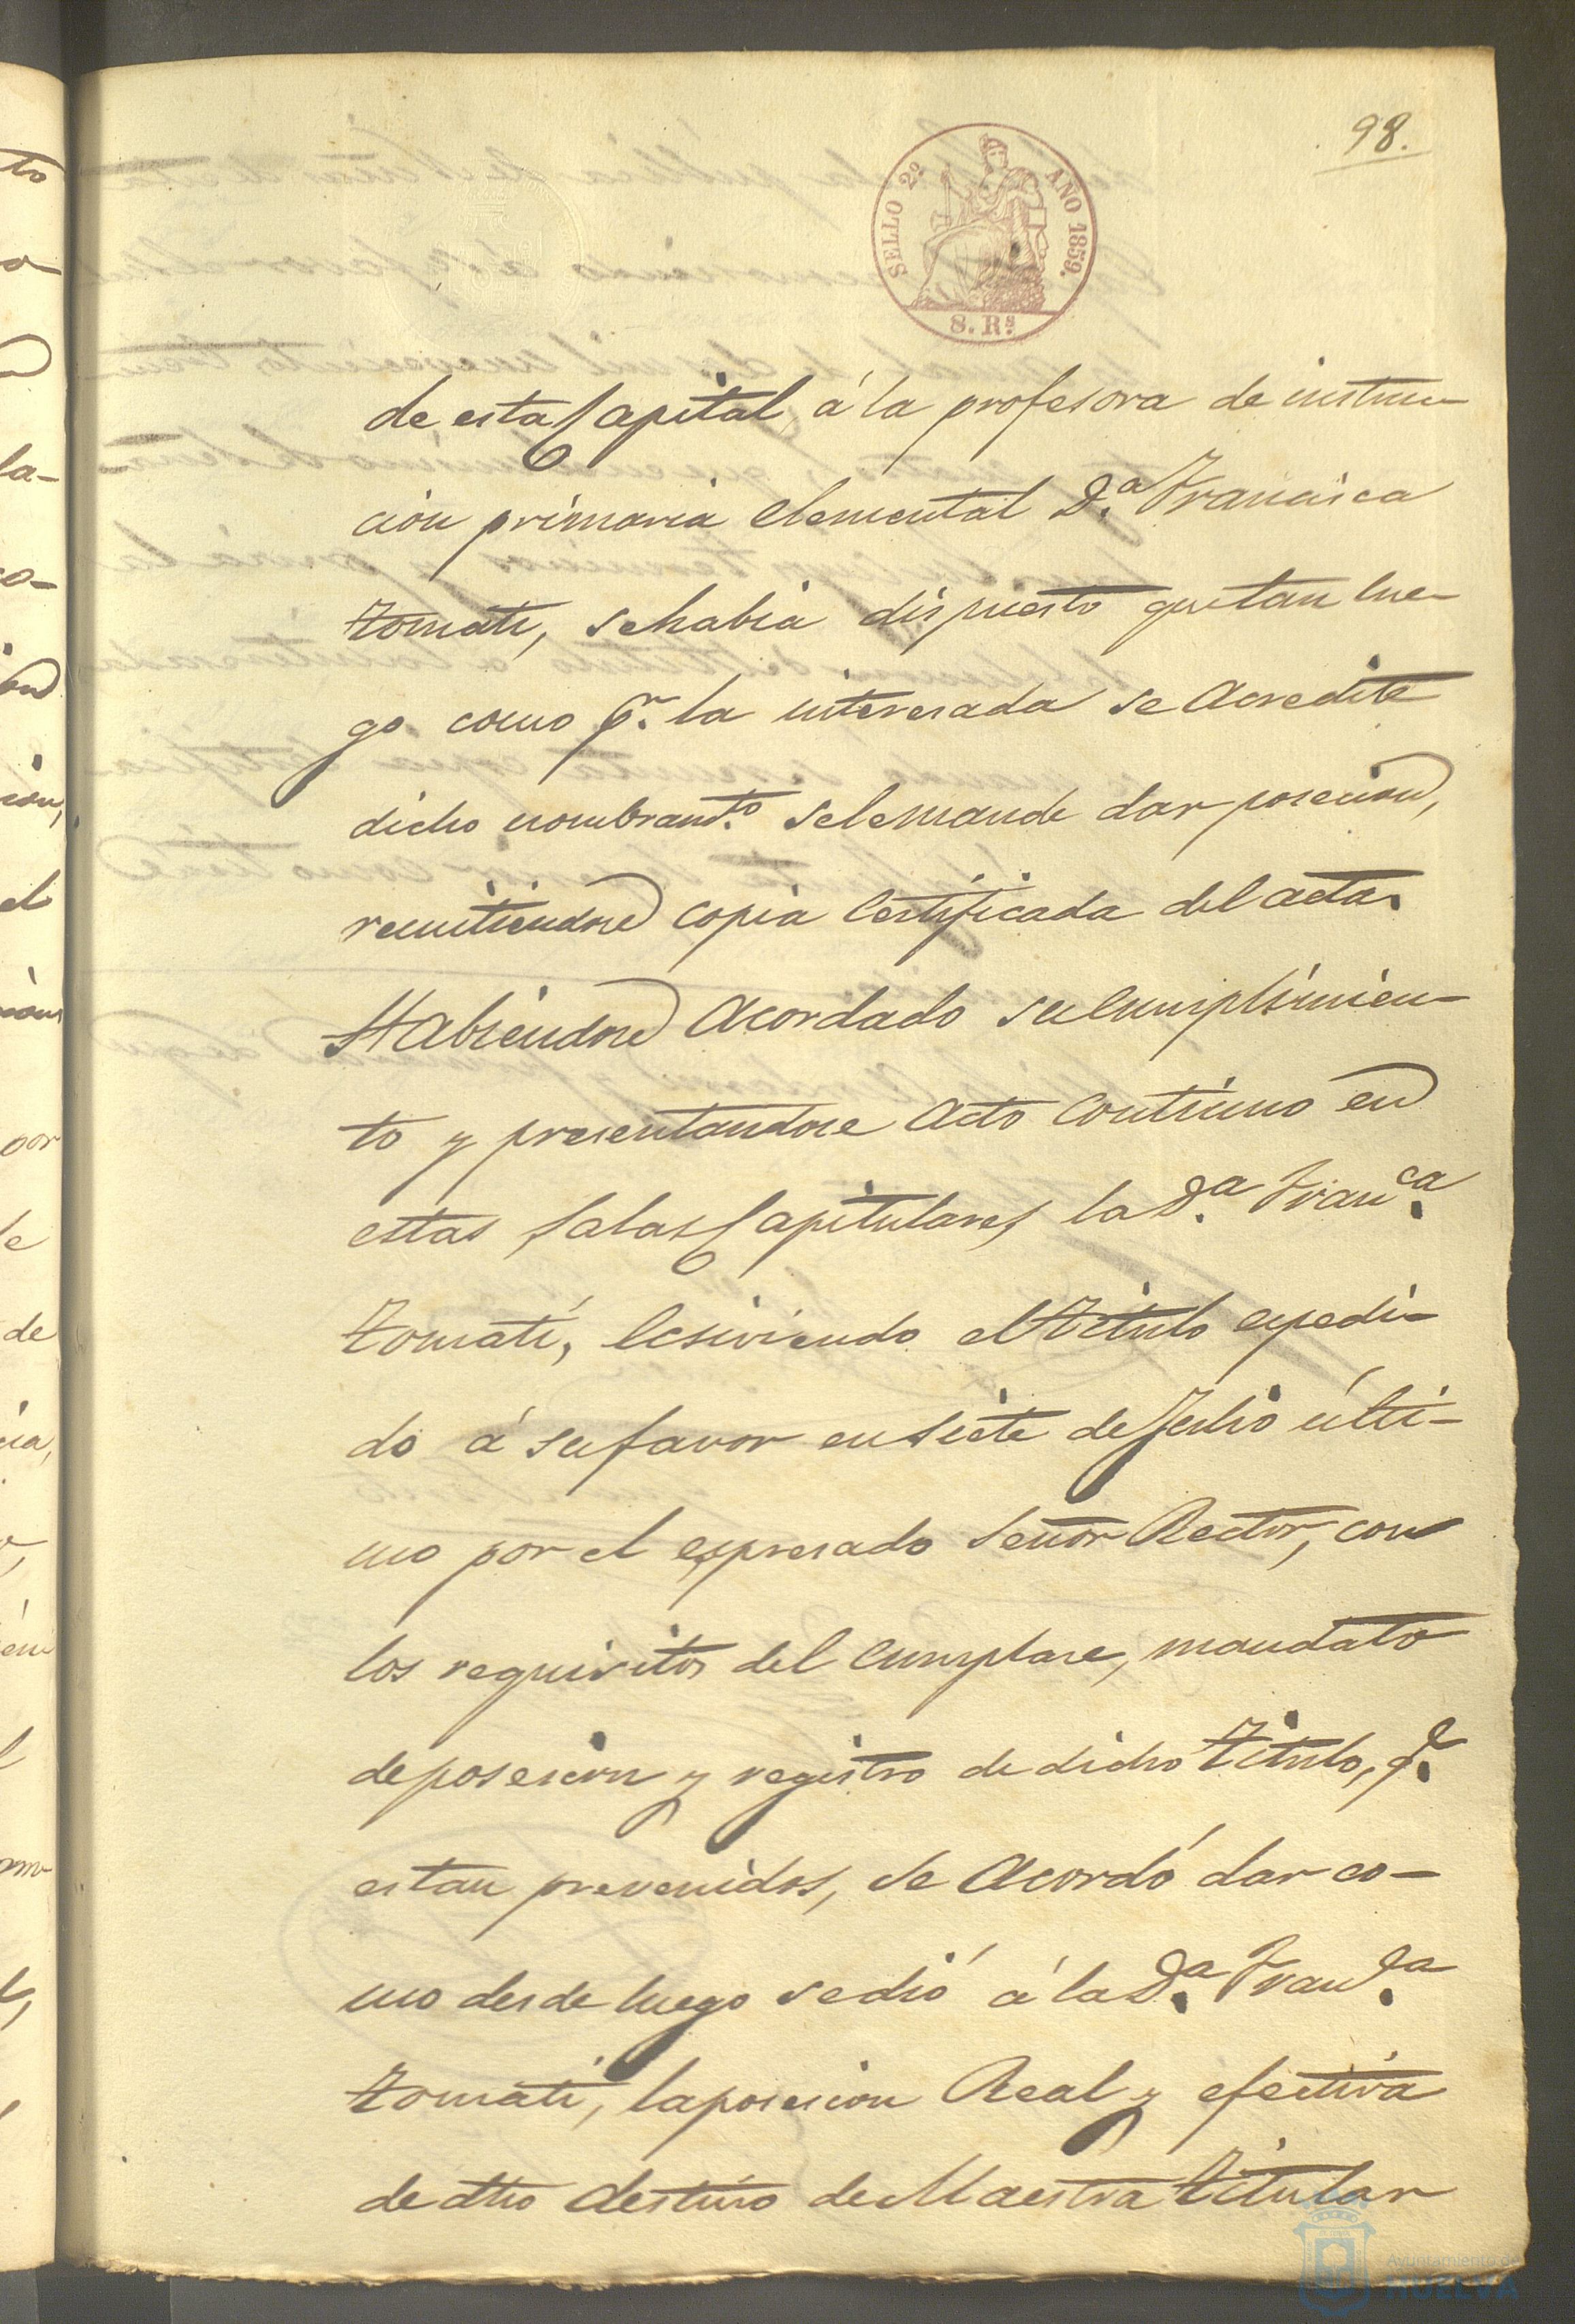 98.
SELLO 2º AÑO 1859.
8. Rs
de esta Capital, á la profesora de instruc-
cion primaria elemental D.ª Francisca
Tomati, se habia dispuesto que tan lue-
go como p.r la interesada se acredite
dicho nombram.to se le mande dar posecion,
remitiendose copia certificada del acta.
Habiendose acordado su cumplimien-
to y presentandose acto continuo en
estas Salas Capitulares la D.ª Fran.ca
Tomati, exiviendo el Titulo espedi-
do á su favor en siete de Julio últi-
mo por el espresado Señor Rector, con
los requisitos del cumplase, mandato
de posesion y registro de dicho Titulo, q.e
estan prevenidos, se acordó dar co-
mo desde luego se dió á la D.ª Fran.ca
Tomati, la posesion Real y efectiva
de dho destino de Maestra Titular
Ayuntamiento de
HUELVA